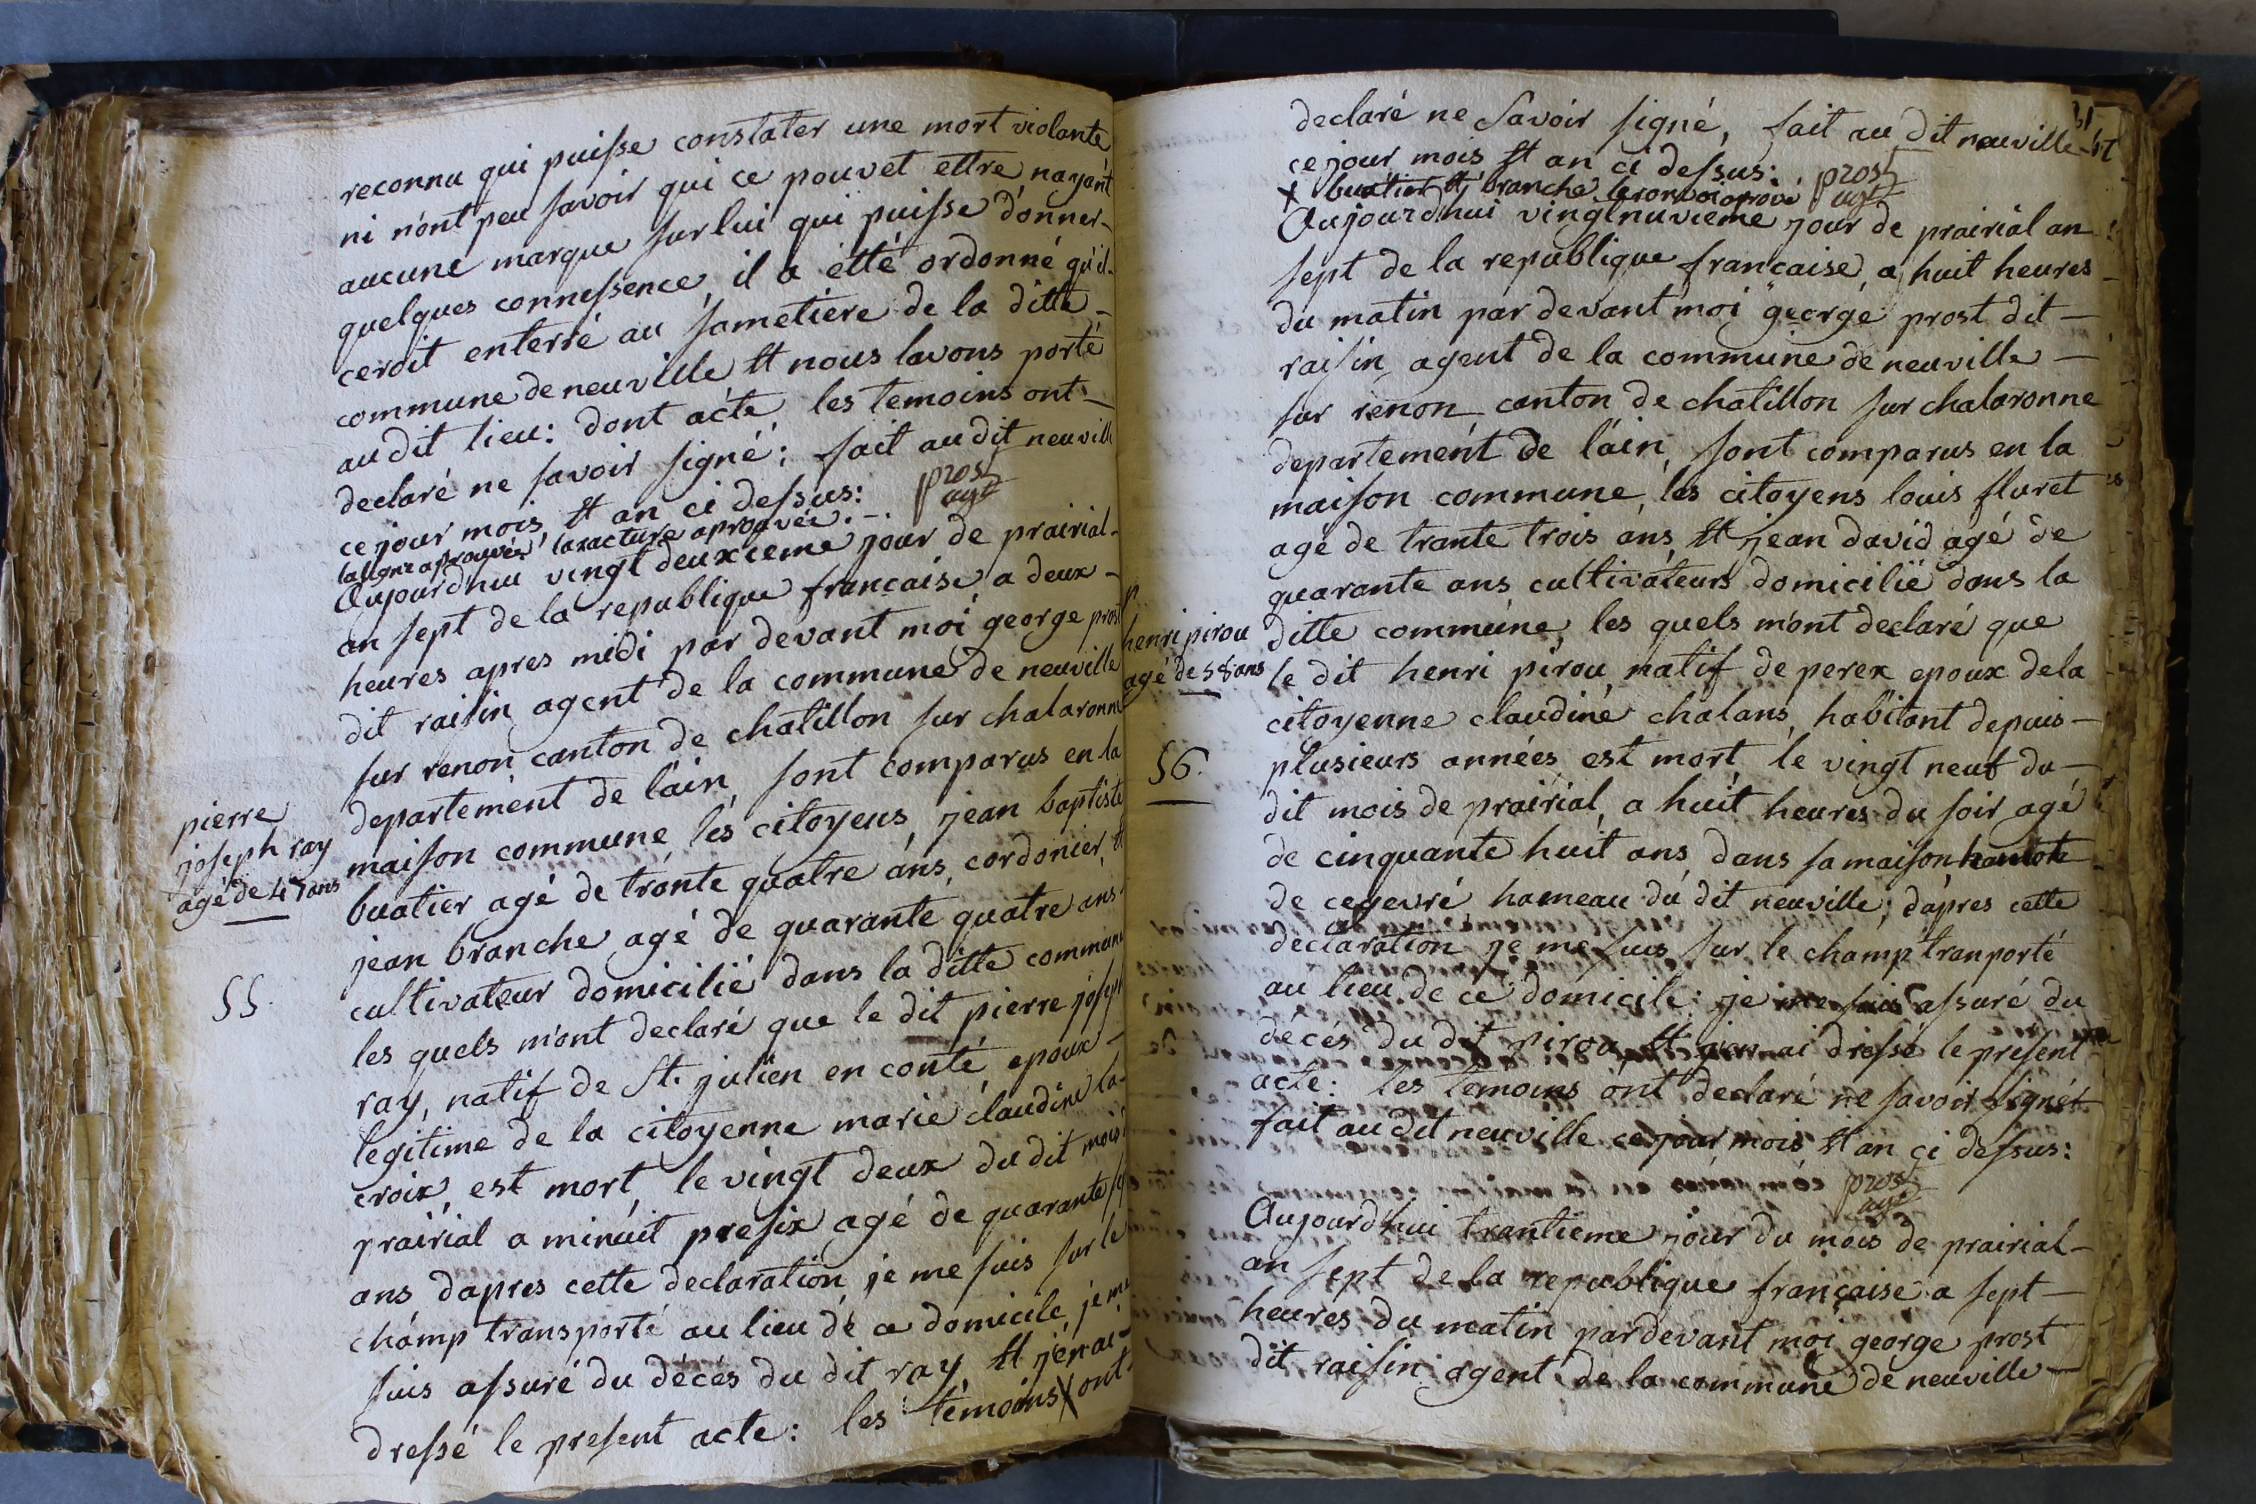 reconnu qui puisse constater une mort violante
ni n'ont peu savoir qui ce pouvet ettre nayant
aucune marque sur lui qui puisse donner-
quelques connessence, il a etté ordonné qu'il-
ceroit enterré au sametiere de la ditte-
commune de neuville et nous lavons porté
au dit lieu: dont acte les temoins ont-
declaré ne savoir signé; fait au dit neuville
ce jour mois et an ci dessus: prost
agt
laligne aprouvée laracture aprouvée.-.
Aujourdhui vingt deuxieme jour de prairial-
an sept de la republique francaise a deux-
heures apres midi par devant moi george prost
dit raisin agent de la commune de neuville
sur renon canton de chatillon sur chalaronne
departement de lain, sont comparus en la
maison commune les citoyens jean baptiste
buatier agé de trante quatre ans, cordonier, et
jean branche agé de quarante quatre ans
cultivateur domicilié dans la ditte commune
les quels m'ont declaré que le dit pierre joseph
ray, natif de St. julien en conté epoux-
legitime de la citoyenne marie claudine la-
croix, est mort, le vingt deux du dit mois
prairial a minuit prefix agé de quarante
ans dapres cette declaration je me suis sur le
champ transporté au lieu de ce domicile, je me
suis assuré du décés du dit ray, et j'en ai-
dressé le present acte: les temoins X ont
pierre
joseph ray
agé de 47 ans
55.
declaré ne savoir signé, fait au dit neuville
ce jour mois et an ci dessus: prost
agt
X buatier et j branche le ronvoi aprové
Aujourdhui vingtnuvieme jour de prairial an
sept de la republique francaise, a huit heures-
du matin par devant moi george prost dit-
raisin, agent de la commune de neuville-
sur renon canton de chatillon sur chalaronne
departement de lain, sont comparus en la
maison commune, les citoyens louis fluret
agé de trante trois ans, et jean david agé de
quarante ans cultivateurs domicilié dans la
ditte commune, les quels m'ont declaré que
le dit henri pirou natif de perex epoux dela
citoyenne claudine chalans, habitant depuis-
plusieurs années, est mort le vingt neuf du-
dit mois de prairial, a huit heures du soir agé
de cinquante huit ans dans sa maison
de ceyevré hameau du dit neuville; dapres cette
declaration je me suis sur le champ tranporté
au lieu de ce domicile: je me suis assuré du
décés du dit pirou et j'en ai dressé le present
acte: les temoins ont declaré ne savoir signér
fait au dit neuville ce jour mois et an ci dessus:
prost
agt
henri pirou
agé de 58 ans
56.
Aujourd'hui trantieme jour du mois de prairial-
an sept de la republique française a sept-
heures du matin pardevant moi george prost
dit raisin agent de la commune de neuville-